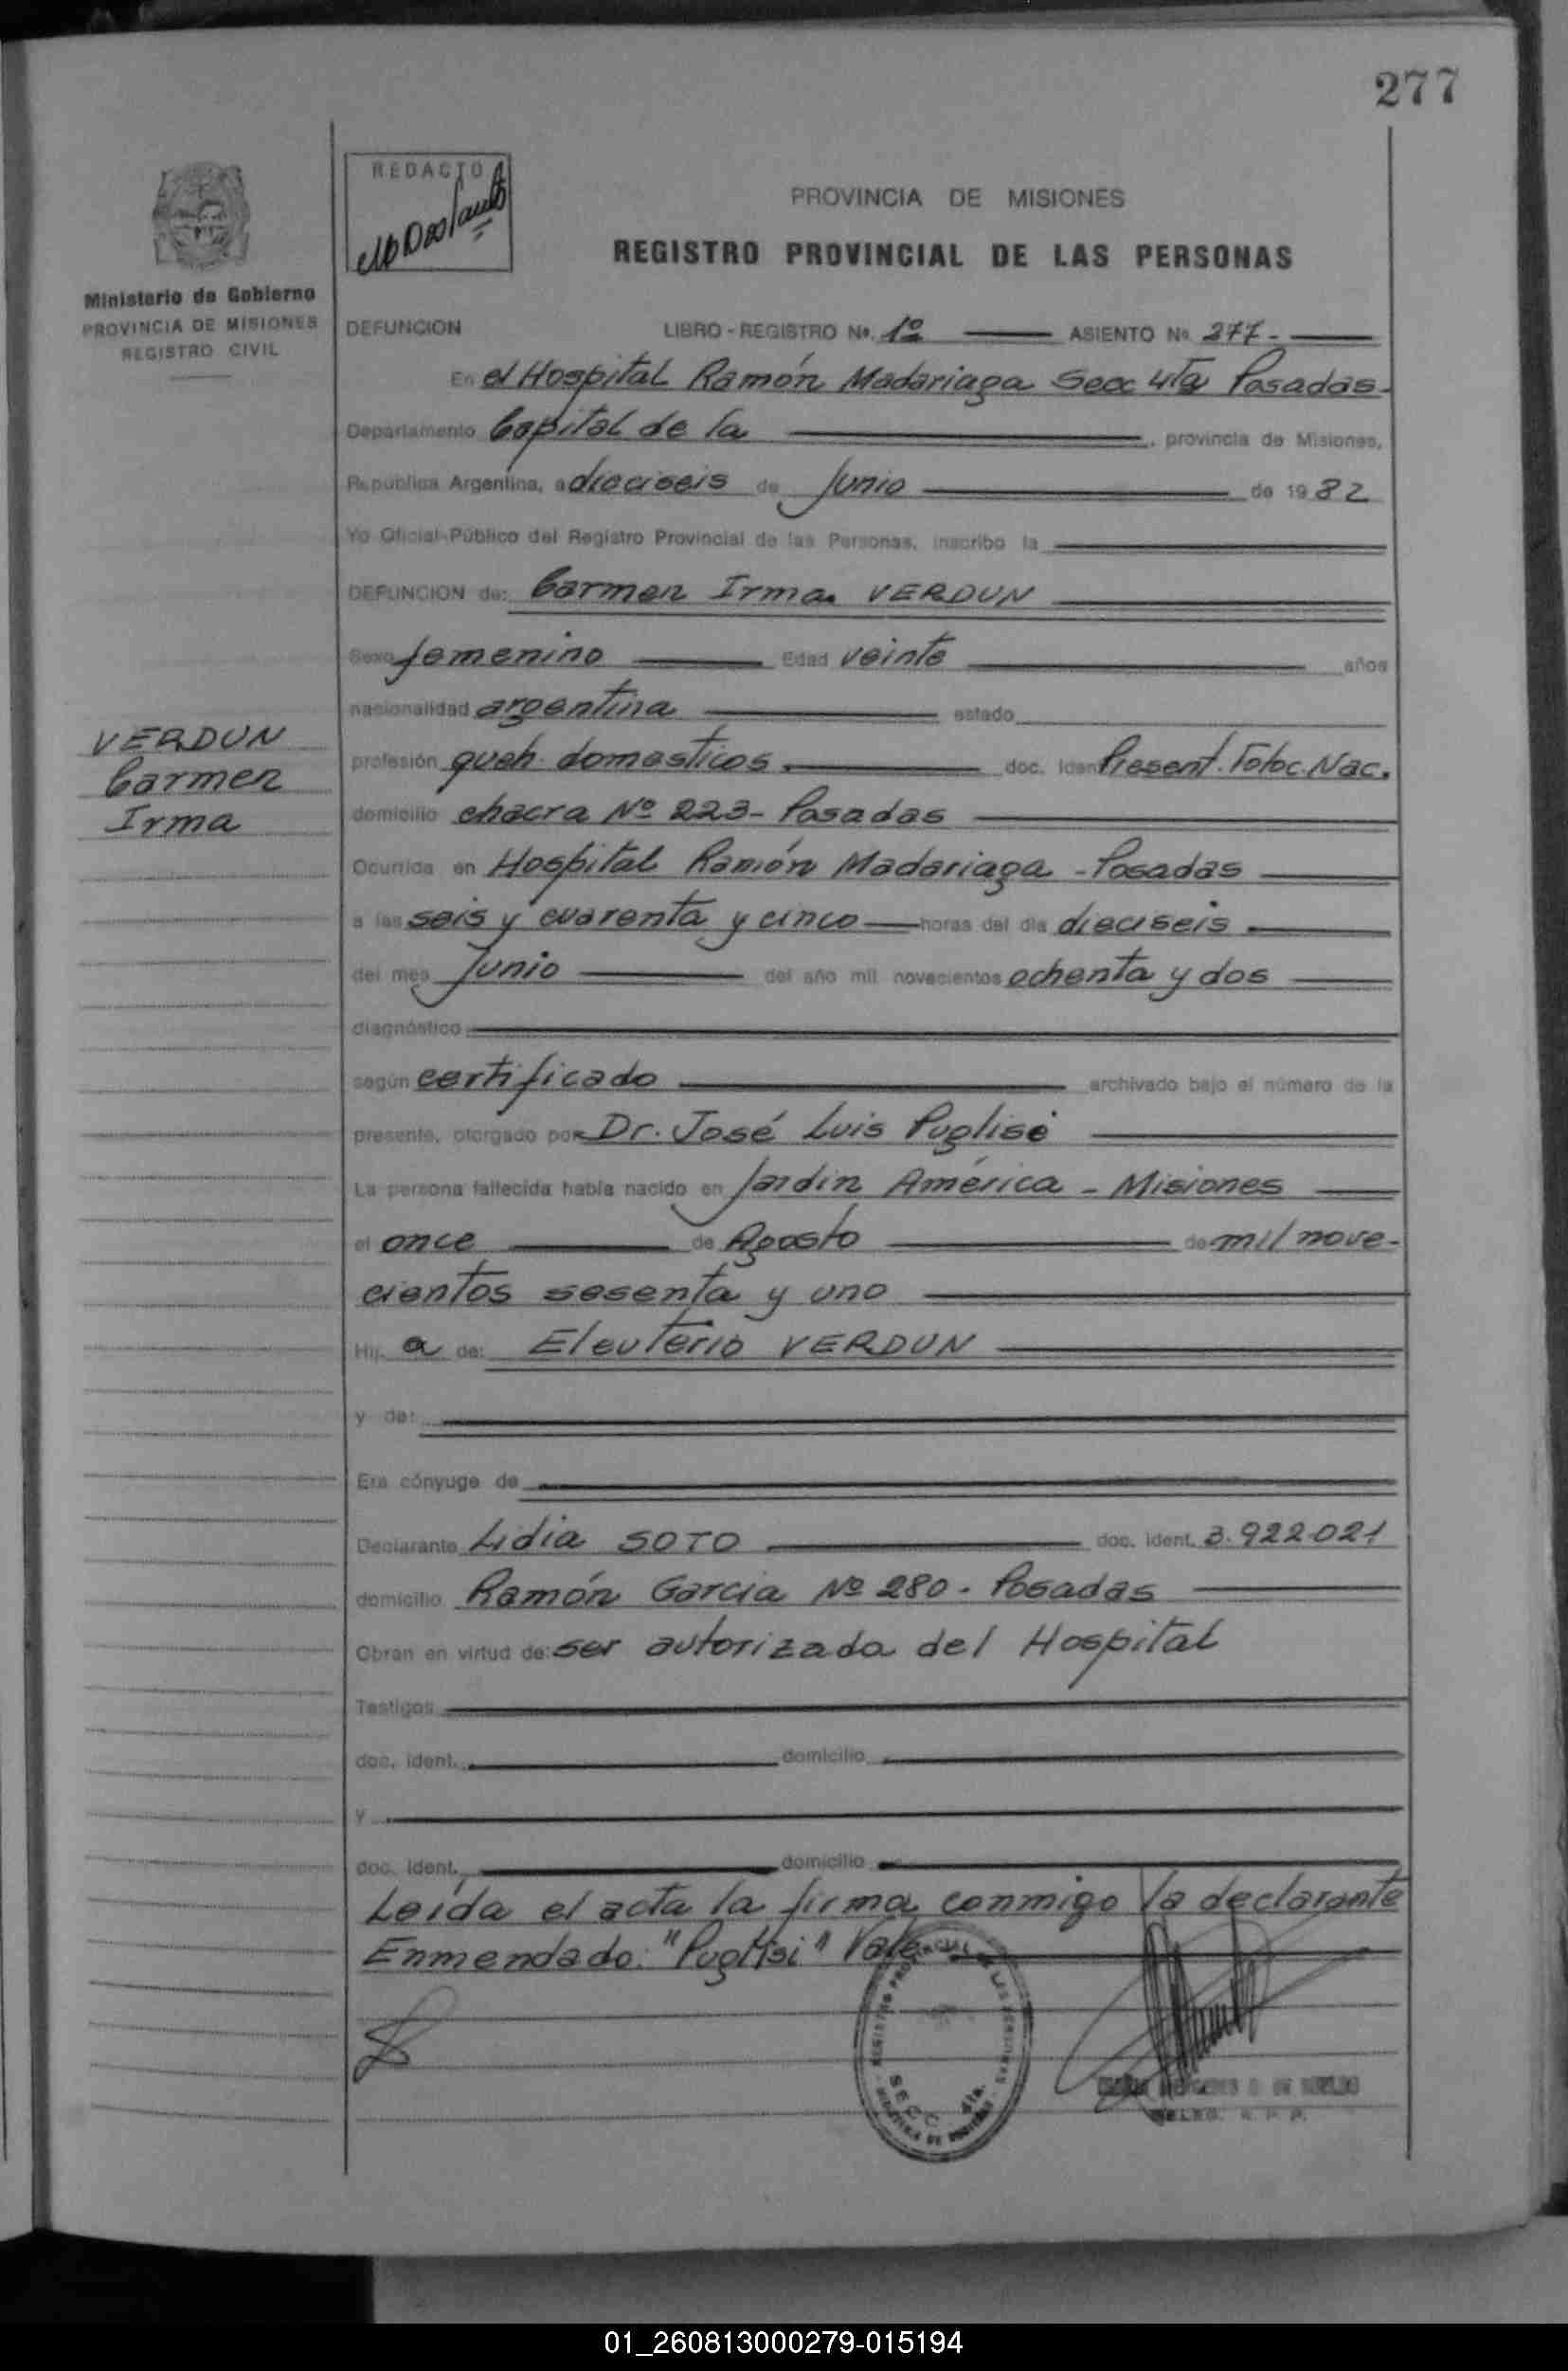 277
REDACTO
PROVINCIA DE MISIONES
REGISTRO PROVINCIAL DE LAS PERSONAS
Ministerio de Gobierno
PROVINCIA DE MISIONES
REGISTRO CIVIL
DEFUNCION LIBRO - REGISTRO No. 1º ASIENTO No 277-
En el Hospital Ramón Madariaga Secc 4ta Posadas-
Departamento Capital de la , provincia de Misiones,
República Argentina, a dieciseis de Junio de 1982
Yo Oficial Público del Registro Provincial de las Personas, inscribo la
DEFUNCION de: Carmen Irma VERDUN
Sexo femenino Edad veinte años
nacionalidad argentina estado
VERDUN
Carmen
Irma
profesión queh. domesticos doc. Iden Present. Fotoc. Nac.
domicilio chacra Nº 223- Posadas
Ocurrida en Hospital Ramón Madariaga - Posadas
a las seis y cuarenta y cinco horas del día dieciseis
del mes Junio del año mil novecientos ochenta y dos
diagnóstico
según certificado archivado bajo el número de la
presente, otorgado por Dr. José Luis Puglisi
La persona fallecida había nacido en Jardín América - Misiones
el once de Agosto de mil nove-
cientos sesenta y uno
Hij a de: Eleuterio VERDUN
y de:
Era cónyuge de
Declarante Lidia SOTO doc. Ident. 3.922.021
domicilio Ramón Garcia Nº 280- Posadas
Obran en virtud de: ser autorizada del Hospital
Testigos
doc. Ident. domicilio
y
doc. Ident. domicilio
Leída el acta la firma conmigo la declarante
Enmendado: "Puglisi" Vale
REGISTRO PROVINCIAL DE LAS PERSONAS
SECC. 4ta.
R. P. P.
01_260813000279-015194